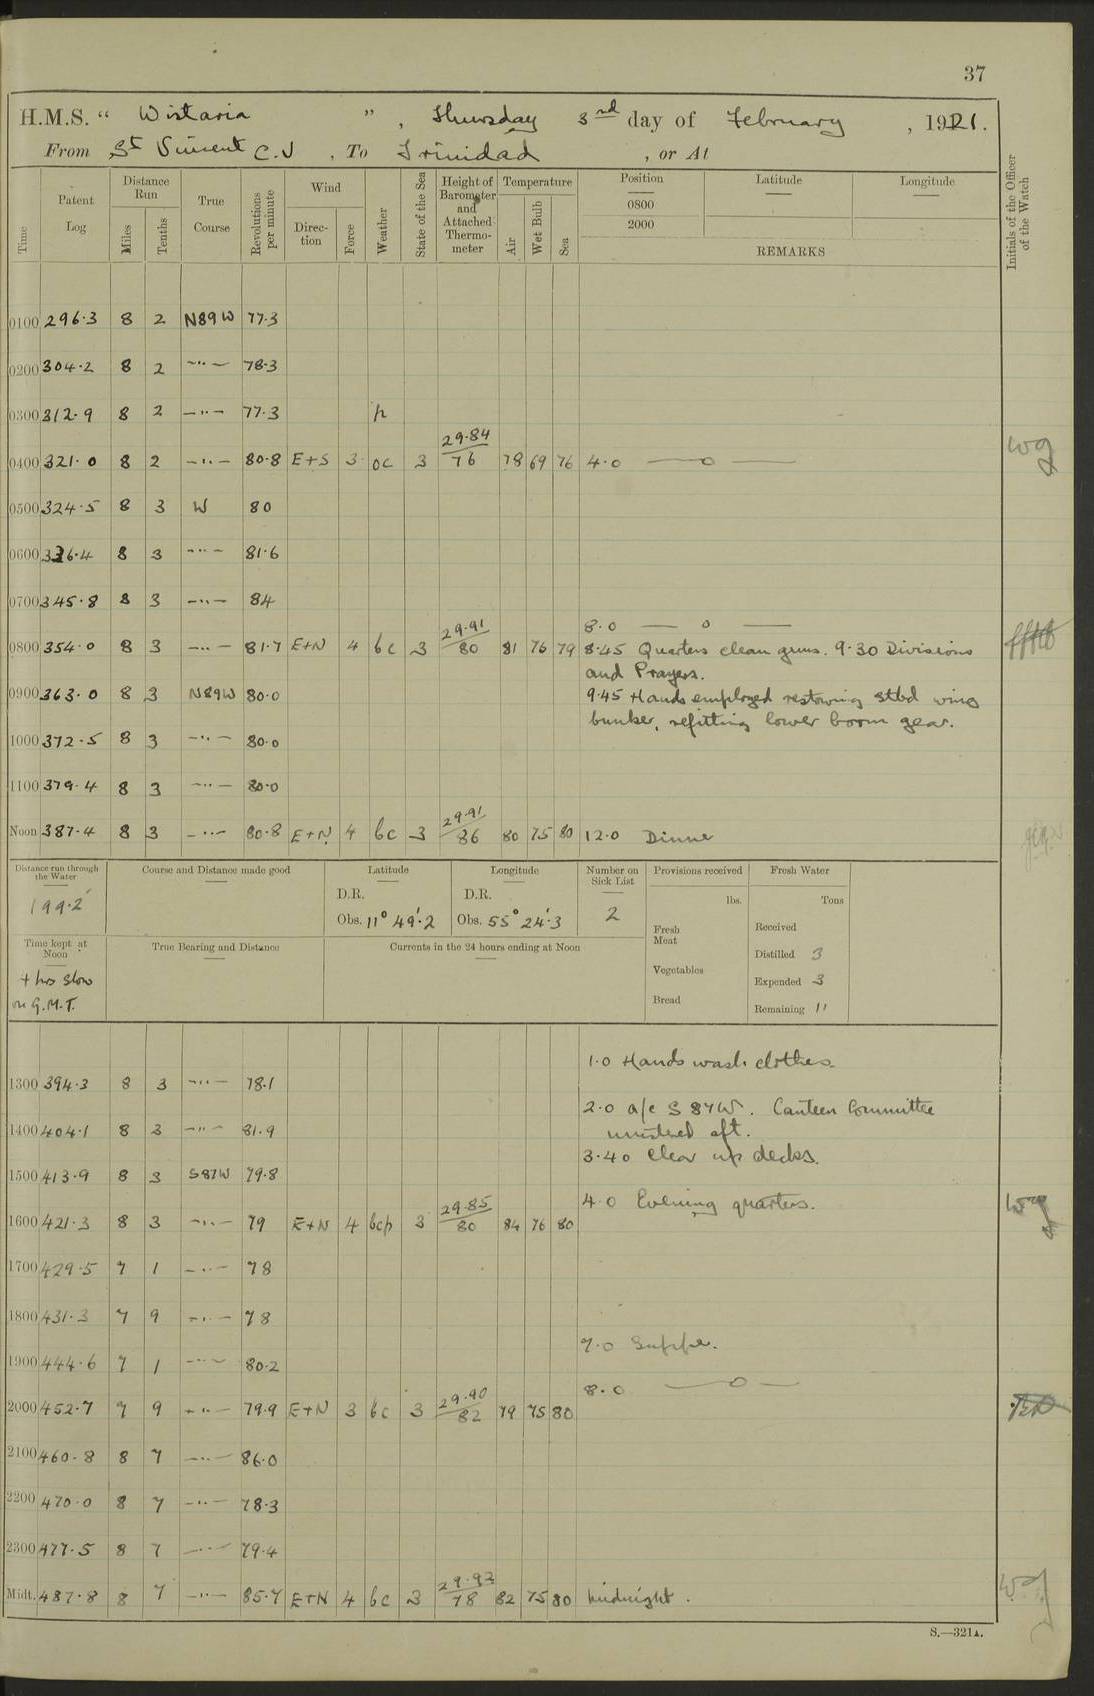 37
H.M.S. “ Wistaria ” , Thursday 3rd day of February , 1921.
From St Vincent C.V , To Trinidad , or At
Time Patent Log Distance Run Miles Tenths True Course Revolutions per minute Wind Direction Force Weather State of the Sea Height of Barometer and Attached Thermometer Temperature Air Wet Bulb Sea Position 0800 2000 Latitude Longitude REMARKS Initials of the Officer of the Watch
0100 296.3 8 2 N89W 77.3
0200 304.2 8 2 —··— 78.3
0300 312.9 8 2 —··— 77.3 p
0400 321.0 8 2 —··— 80.8 E+S 3 oc 3 29.84/76 78 69 76 4.0 —o— wg
0500 324.5 8 3 W 80
0600 336.4 8 3 —··— 81.6
0700 345.8 8 3 —··— 84
8.0 — o —
0800 354.0 8 3 —··— 81.7 E+N 4 bc 3 29.91/80 81 76 79 8.45 Quarters clean guns. 9.30 Divisions
and Prayers.
0900 363.0 8 3 N89W 80.0 9.45 Hands employed restowing stbd wing
bunker, refitting lower boom gear.
1000 372.5 8 3 —··— 80.0
1100 379.4 8 3 —··— 80.0
Noon 387.4 8 3 —··— 80.8 E+N 4 bc 3 29.91/86 80 75 80 12.0 Dinner
Distance run through the Water 199.2
Course and Distance made good
Latitude D.R. Obs. 11° 49'.2
Longitude D.R. Obs. 55° 24'.3
Number on Sick List 2
Provisions received lbs. Fresh Meat Vegetables Bread
Fresh Water Tons Received Distilled 3 Expended 3 Remaining 11
Time kept at Noon + hrs slow on G.M.T.
True Bearing and Distance
Currents in the 24 hours ending at Noon
1.0 Hands wash clothes.
1300 394.3 8 3 —··— 78.1
2.0 a/c S 87W. Canteen Committee
1400 404.1 8 3 —··— 81.9 mustered aft.
3.40 Clear up decks.
1500 413.9 8 3 S87W 79.8
4.0 Evening quarters.
1600 421.3 8 3 —··— 79 E+N 4 bcp 3 29.85/80 84 76 80 wg
1700 429.5 7 1 —··— 78
1800 431.3 7 9 —··— 78
7.0 Supper.
1900 444.6 7 1 —··— 80.2
8.0 —o—
2000 452.7 7 9 —··— 79.9 E+N 3 bc 3 29.90/82 79 75 80
2100 460.8 8 7 —··— 86.0
2200 470.0 8 7 —··— 78.3
2300 477.5 8 7 —··— 79.4
Midt. 487.8 8 7 —··— 85.7 E+N 4 bc 3 29.92/78 82 75 80 Midnight. wg
S.—321A.